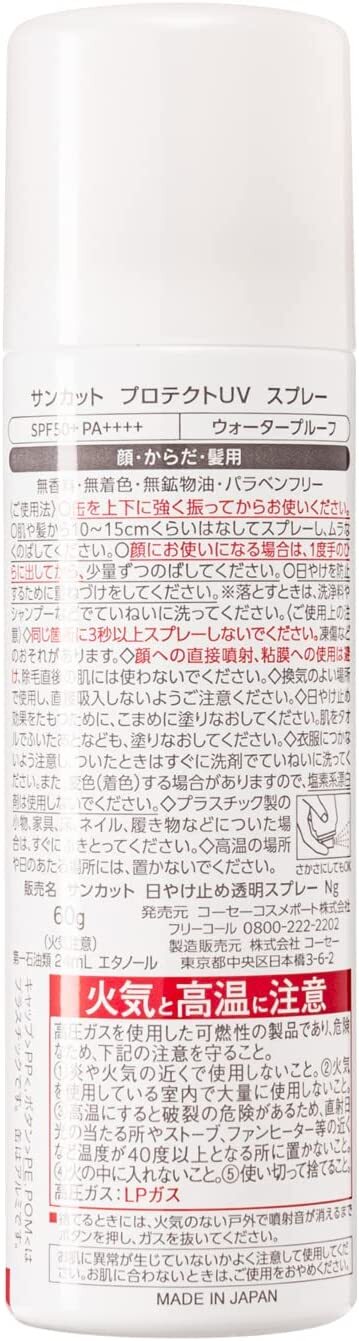 サンカット プロテクトUV スプレー
SPF50+ PA++++ ウォータープルーフ
顔・からだ・髪用
無香料・無着色・無鉱物油・パラベンフリー
〈ご使用法〉〇缶を上下に強く振ってからお使いください。
〇肌や髪から10～15cmくらいはなしてスプレーし、ムラな
くのばしてください。〇顔にお使いになる場合は、1度手のひ
らに出してから、少量ずつのばしてください。〇日やけを防止
するために重ねづけをしてください。※落とすときは、洗浄料や
シャンプーなどでていねいに洗ってください。〈ご使用上の注
意〉◇同じ箇所に3秒以上スプレーしないでください。凍傷など
のおそれがあります。◇顔への直接噴射、粘膜への使用は避
け、除毛直後の肌には使わないでください。◇換気のよい場所
で使用し、直接吸入しないようご注意ください。◇日やけ止め
効果をたもつために、こまめに塗りなおしてください。肌をタオ
ルでふいたあとなども、塗りなおしてください。◇衣服につかな
いよう注意し、ついたときはすぐに洗剤でていねいに洗ってく
ださい。また、変色(着色)する場合がありますので、塩素系漂白
剤は使用しないでください。◇プラスチック製の
小物、家具、床、ネイル、履き物などについた場
合は、すぐにふきとってください。◇高温の場所
や日のあたる場所には、置かないでください。
さかさにしてもOK
販売名 サンカット 日やけ止め透明スプレー Ng
60g
発売元 コーセーコスメポート株式会社
フリーコール 0800-222-2202
(火気注意)
製造販売元 株式会社 コーセー
第一石油類 mL エタノール
東京都中央区日本橋3-6-2
火気と高温に注意
高圧ガスを使用した可燃性の製品であり、危険
なため、下記の注意を守ること。
①炎や火気の近くで使用しないこと。②火気
を使用している室内で大量に使用しないこと。
③高温にすると破裂の危険があるため、直射日
光の当たる所やストーブ、ファンヒーター等の近く
など温度が40度以上となる所に置かないこと。
④火の中に入れないこと。⑤使い切って捨てること。
高圧ガス:LPガス
捨てるときには、火気のない戸外で噴射音が消えるまで
ボタンを押し、ガスを抜いてください。
お肌に異常が生じていないかよく注意して使用してくだ
さい。お肌に合わないときは、ご使用をおやめください。
MADE IN JAPAN
キャップ＞PP＜ボタン＞PE,POM＜は
プラスチックです。缶はアルミです。